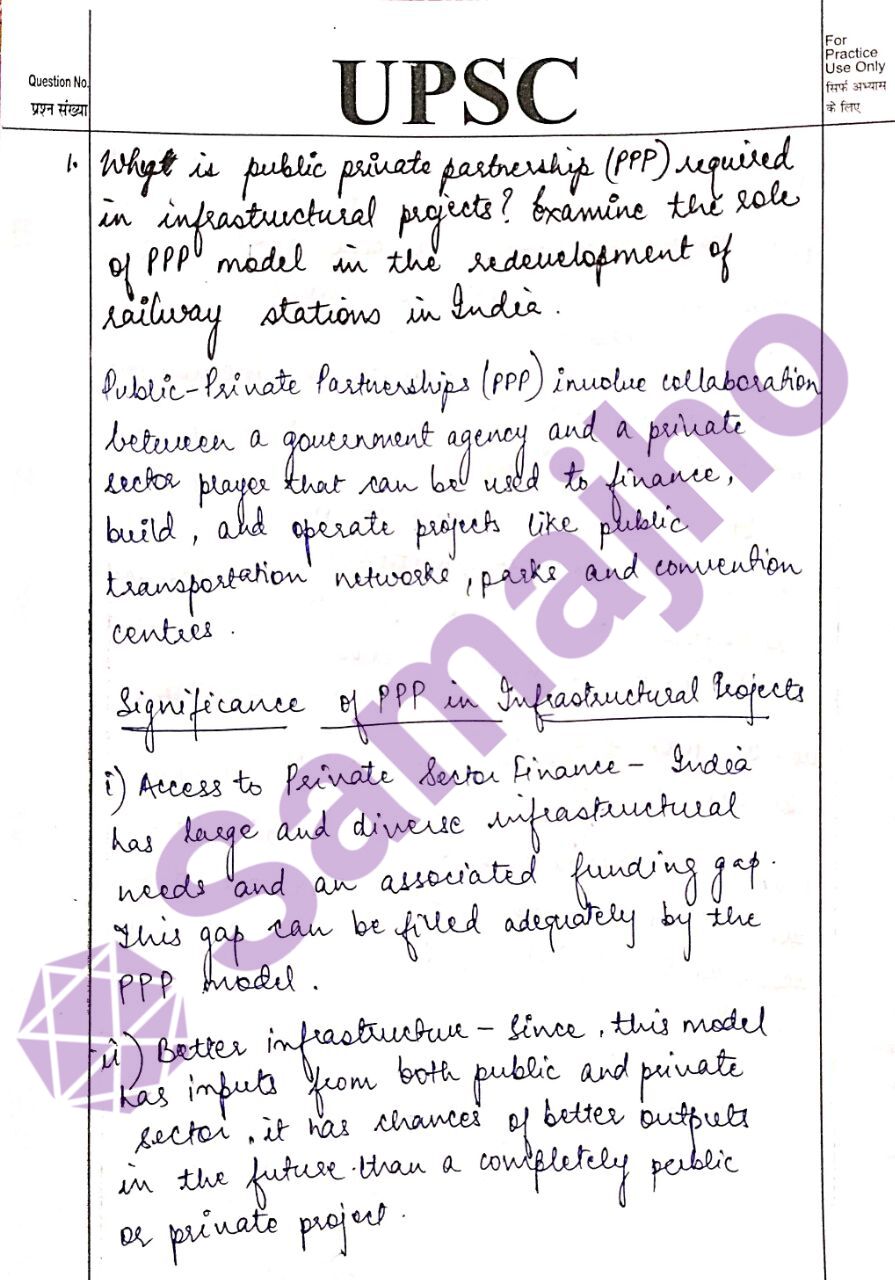 Question No.
प्रश्न संख्या
UPSC
For
Practice
Use Only
सिर्फ अभ्यास
के लिए
1. Why is public private partnership (PPP) required
in infrastructural projects? Examine the role
of PPP model in the redevelopment of
railway stations in India.
Public-Private Partnerships (PPP) involve collaboration
between a government agency and a private
sector player that can be used to finance,
build, and operate projects like public
transportation networks, parks and convention
centres.
Significance of PPP in Infrastructural Projects
i) Access to Private Sector Finance – India
has large and diverse infrastructural
needs and an associated funding gap.
This gap can be filled adequately by the
PPP model.
ii) Better infrastructure – Since, this model
has inputs from both public and private
sector, it has chances of better outputs
in the future than a completely public
or private project.
Samajho